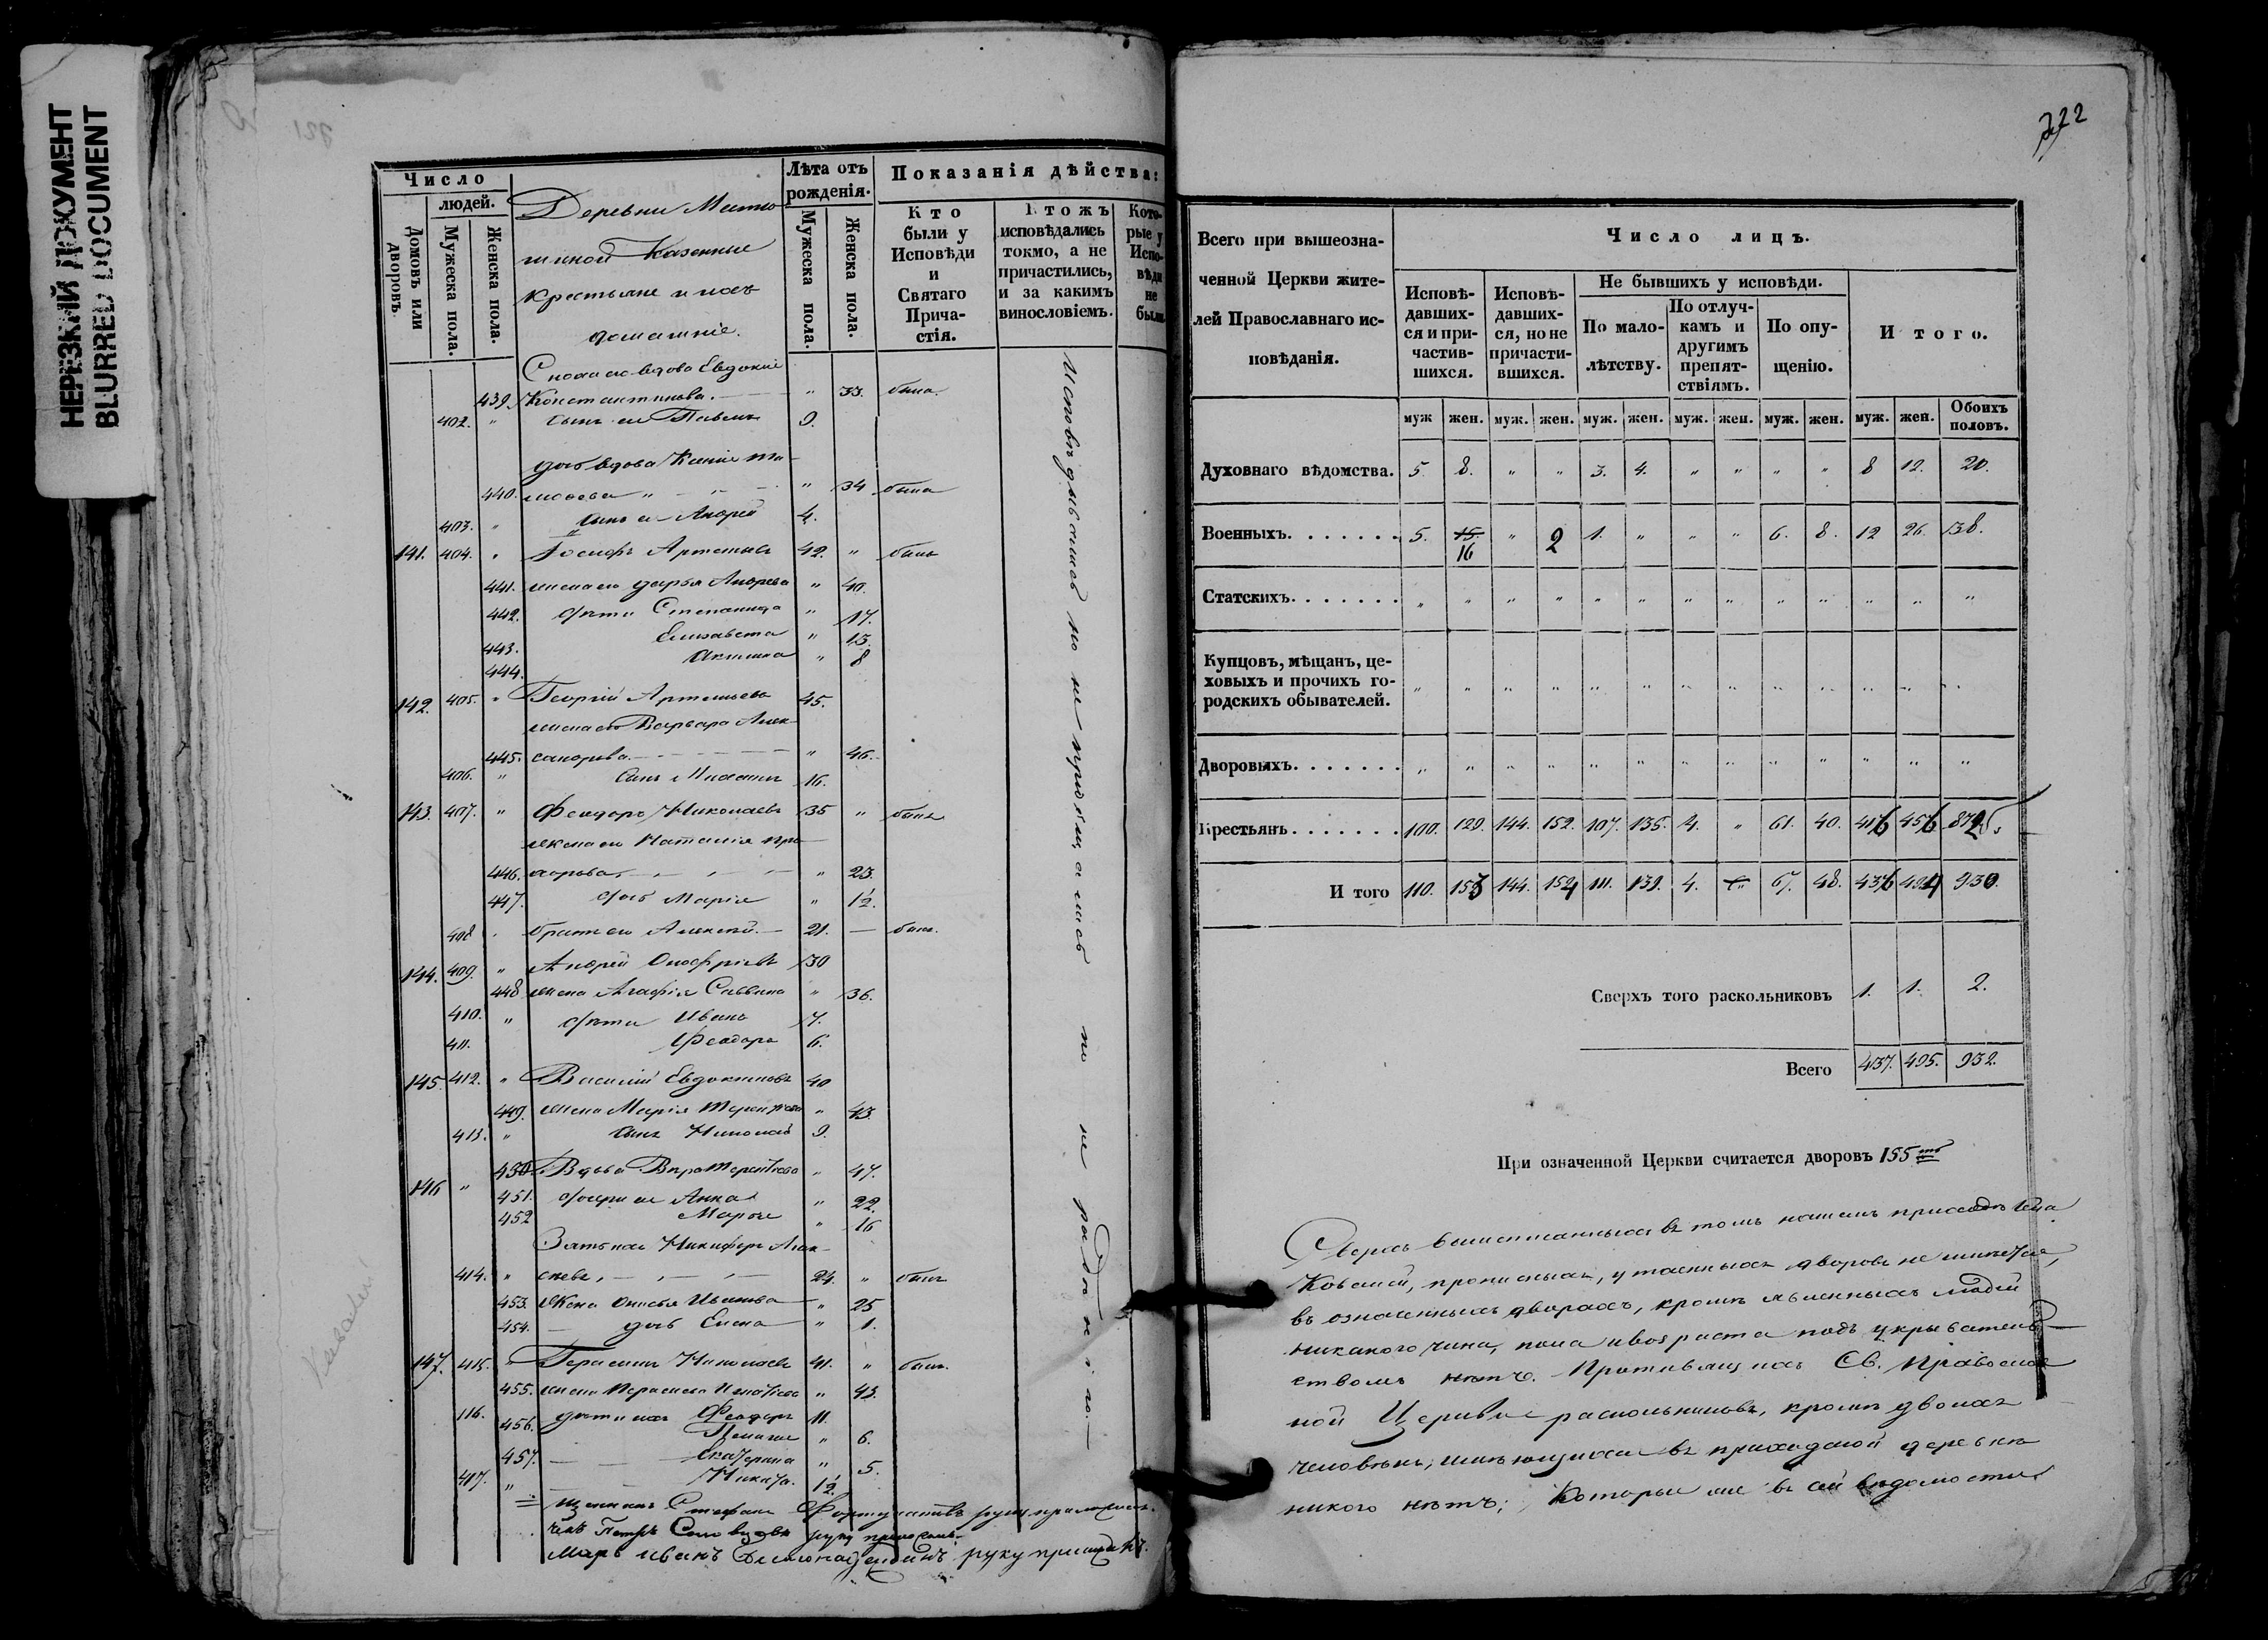 НЕРЕЗКИЙ ДОКУМЕНТ
BLURRED DOCUMENT
Число
людей.
Домовъ или дворовъ.
Мужеска пола.
Женска пола.
Деревни
Казенные
крестьяне и ихъ
домашніе.
Лѣта отъ рожденія.
Мужеска пола.
Женска пола.
Показанія дѣйства:
Кто были у Исповѣди и Святаго Причастія.
Ктожъ исповѣдались токмо, а не причастились, и за какимъ винословіемъ.
Которые у Исповѣди не были
вдова Евдокія
439. Константинова. " 33. была.
402. " сынъ ея Павелъ 9.
вдова Ксенія
440. " 34 была
403. " сынъ ея Андрей 4.
141. 404. " Іосифъ Артемьевъ 42. " былъ
441. жена его Дарья Андреева " 40.
442. дѣти Степанида " 17.
443. Елизавета " 13.
444. Акилина " 8
142. 405. " Георгій Артемьевъ 45.
жена его Варвара Алек-
445. сандрова " 46.
406. " сынъ 16.
143. 407. " Феодоръ Николаевъ 35 " былъ
жена его Наталія
446. " 23.
447. дочь Марія " 1/2.
408 " братъ его Алексѣй 21. — былъ.
144. 409. " Андрей Онофріевъ 30
448 жена Агафія Саввина " 36.
410. " дѣти Иванъ 7.
411. Феодоръ 6.
145. 412. " Василій Евдокимовъ 40
449. жена Марія Терентіева " 43.
413. " сынъ Николай 9.
146 " 450 Вдова Вѣра Терентіева " 47.
451. дочери ея Анна " 22.
452 Марѳа " 16
Зять ихъ Никифоръ Алек-
414. " сѣевъ, 24. " былъ
453. Жена Анисья Иванова " 25
454. дочь Елена " 1.
147. 415. " Герасимъ Николаевъ 41. " былъ.
455. жена Параскева Игнатіева " 43.
416. дѣти ихъ Феодоръ 11.
456. Пелагія " 6.
457. Екатерина " 5.
417. " Никита. 1/2.
Исповѣдывались но не пріобщались по не радѣнію.
Стефанъ Фортунатовъ руку приложилъ.
Петръ руку приложилъ
Иванъ руку приложилъ.
222
Всего при вышеозна-
ченной Церкви жите-
лей Православнаго ис-
повѣданія.
Число лицъ.
Исповѣдавшихся и причастившихся.
Исповѣдавшихся, но не причастившихся.
Не бывшихъ у исповѣди.
По малолѣтству.
По отлучкамъ и другимъ препятствіямъ.
По опущенію.
Итого.
муж жен. муж. жен. муж. жен. муж. жен. муж. жен. муж. жен. Обоихъ половъ.
Духовнаго вѣдомства. 5. 8. " " 3. 4. " " " " 8 12. 20.
Военныхъ. 5. 15. 16 " 2 1. " " " 6. 8. 12 26. 38.
Статскихъ. " " " " " " " " " " " " "
Купцовъ, мѣщанъ, це-
ховыхъ и прочихъ го-
родскихъ обывателей. " " " " " " " " " " " " "
Дворовыхъ. " " " " " " " " " " " " "
Крестьянъ. 100. 129. 144. 152. 107. 135. 4. " 61. 40. 416 456 872.
И того 110. 153 144. 154 111. 139. 4. " 67. 48. 436 494 930.
Сверхъ того раскольниковъ 1. 1. 2.
Всего 437. 495. 932.
При означенной Церкви считается дворовъ 155
Сверхъ вышеписанныхъ въ томъ нашемъ приходѣ
прописныхъ, утаенныхъ дворовъ не имѣется,
въ означенныхъ дворахъ, кромѣ явленныхъ людей
никакого чина, пола и возраста подъ укрыватель-
ствомъ нѣтъ. Противящихся Св. Православ
ной Церкви раскольниковъ, кромѣ двоихъ
человѣкъ, имѣющихся въ приходской деревнѣ
никого нѣтъ; Которые же въ сей вѣдомости